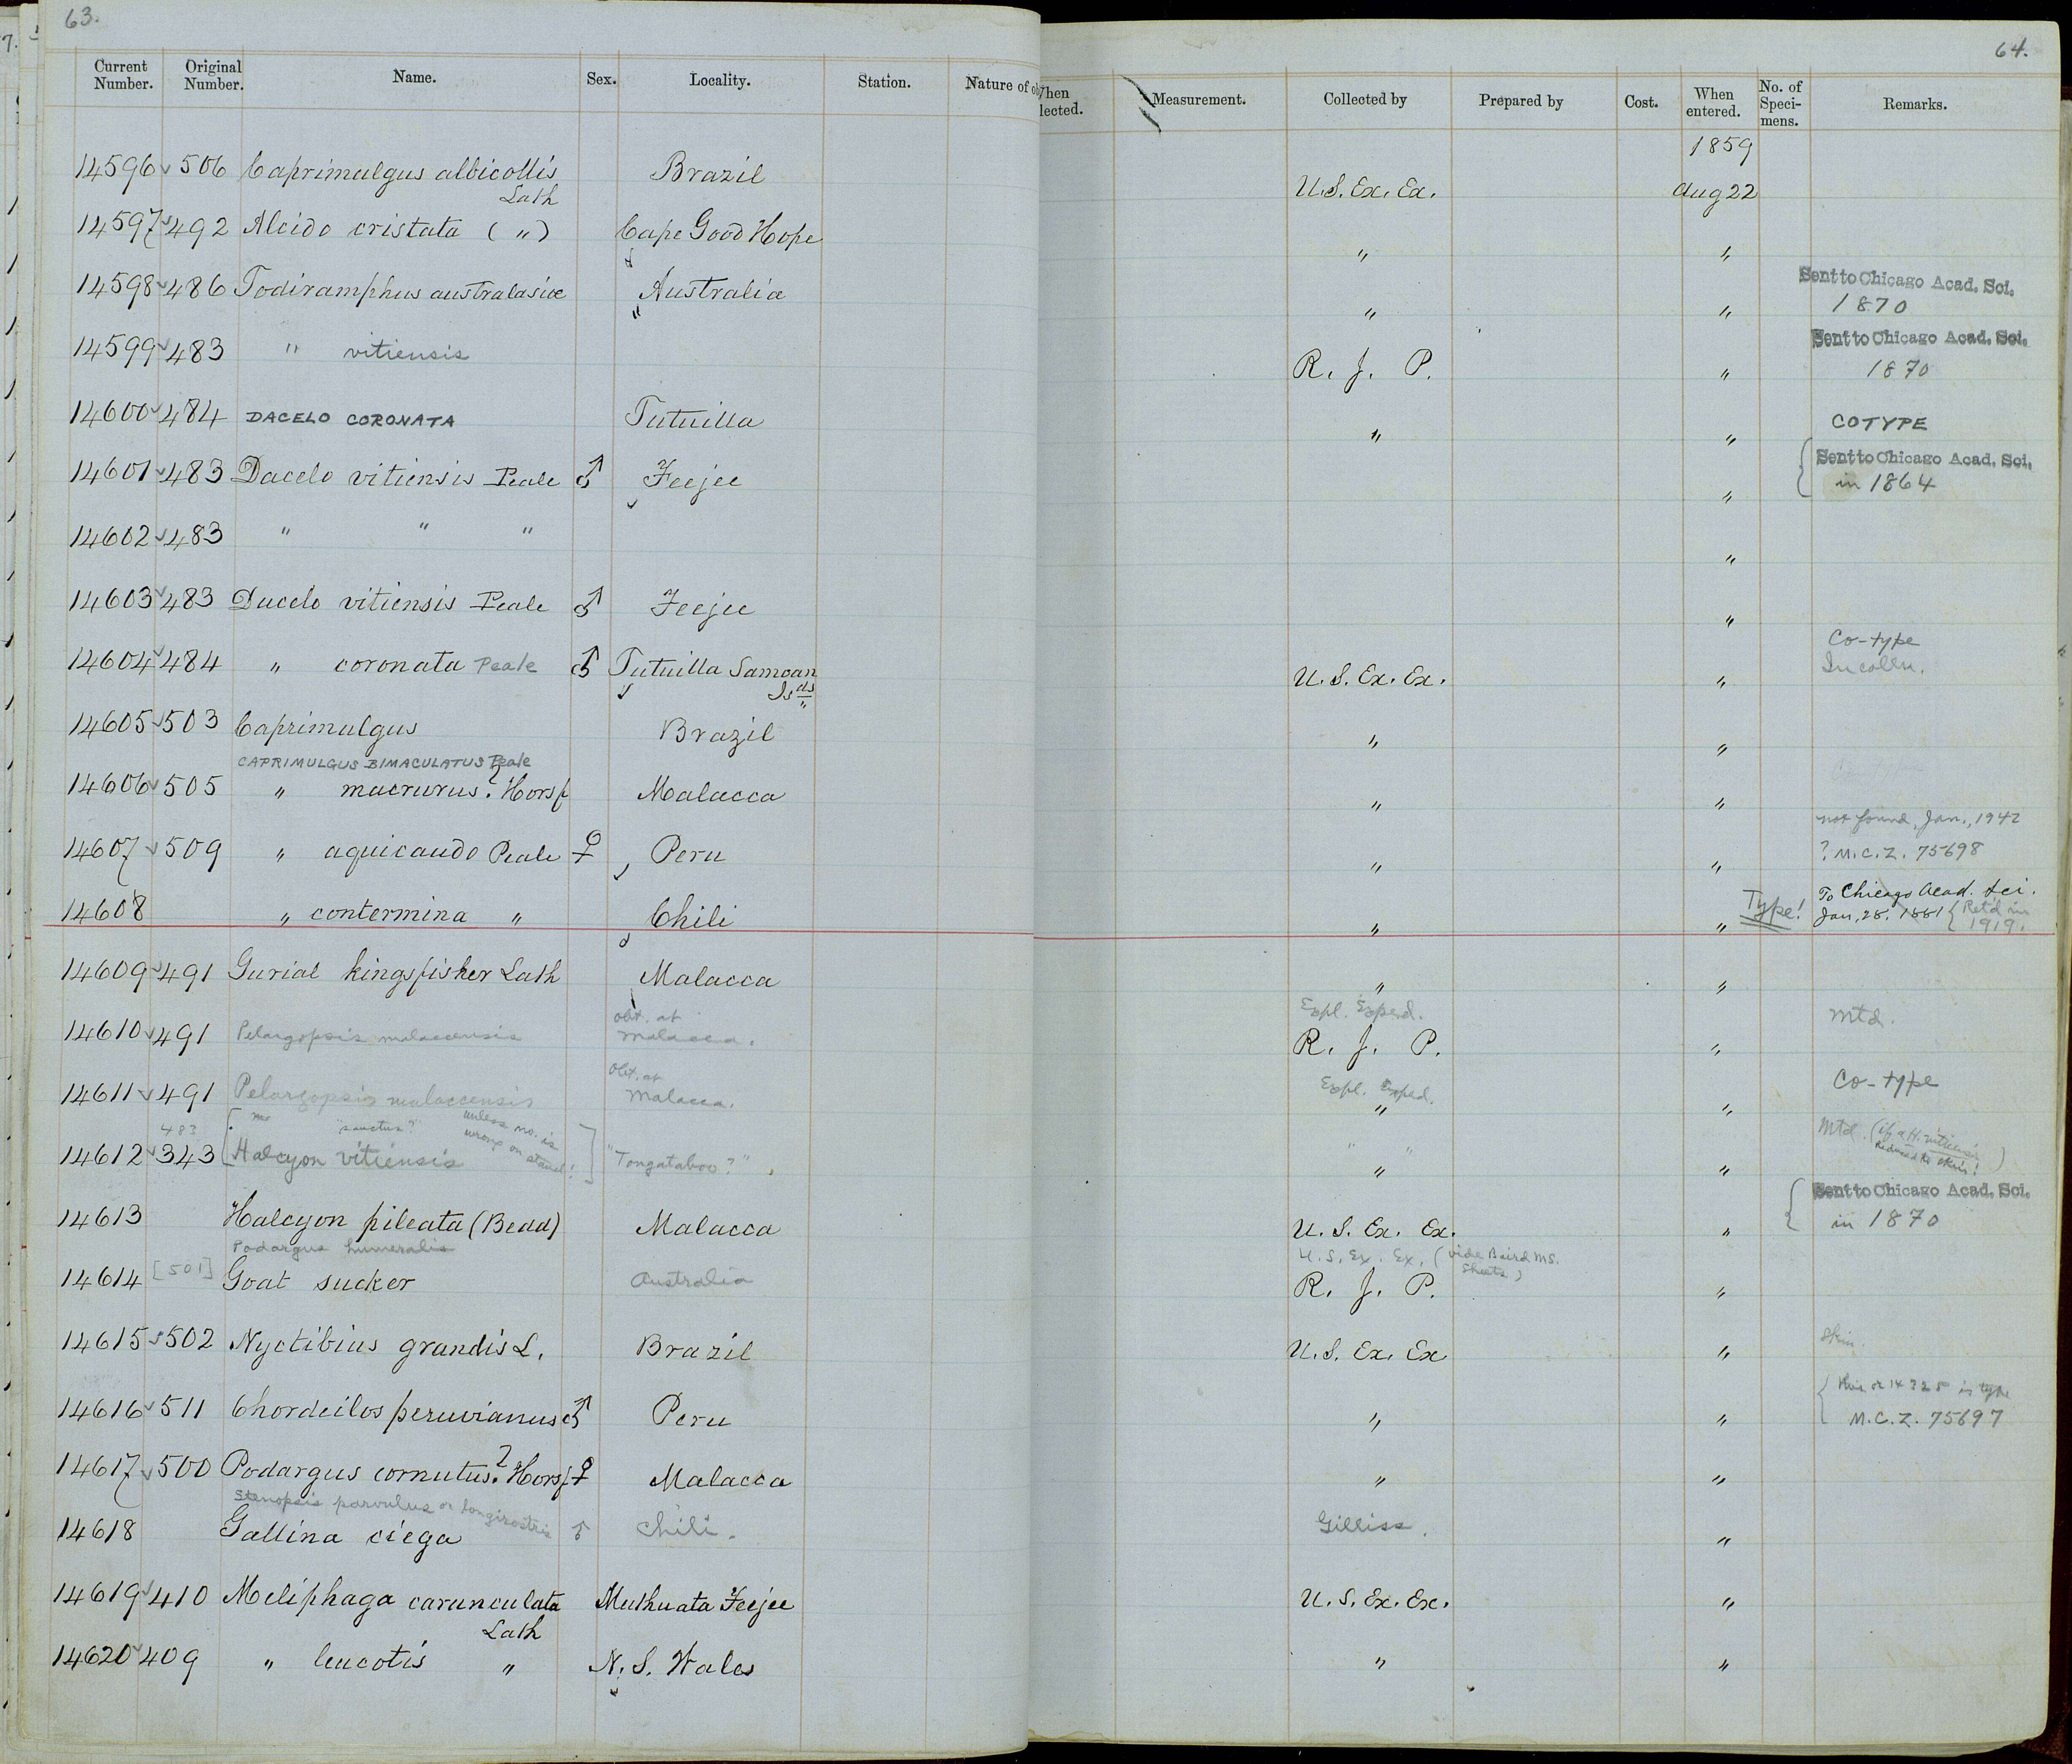 63.
Current Number. Original Number. Name. Sex. Locality. Station. Nature of
64.
When lected. Measurement. Collected by Prepared by Cost. When entered. No. of Speci- mens. Remarks.
1859
14596 506 Caprimulgus albicollis Brazil U.S. Ex. Ex. Aug 22
Lath
14597 492 Alcido cristata ( " ) Cape Good Hope " "
14598 486 Todiramphus australasiæ Australia " " Sent to Chicago Acad. Sci.
1870
14599 483 " vitiensis " R. J. P. " Sent to Chicago Acad. Sci.
1870
14600 484 DACELO CORONATA Tutuilla " " COTYPE
14601 483 Dacelo vitiensis Peale ♂ Feejee " Sent to Chicago Acad. Sci.
in 1864
14602 483 " " " "
14603 483 Dacelo vitiensis Peale ♂ Feejee "
14604 484 " coronata Peale ♂ Tutuilla Samoan U.S. Ex. Ex. " Co-type
Isds In colln.
14605 503 Caprimulgus Brazil " "
CAPRIMULGUS BIMACULATUS Peale
14606 505 " macrurus? Horsf Malacca " "
not found, Jan., 1942
14607 509 " aquicaudo Peale ♀ Peru " " ? M.C.Z. 75698
14608 " contermina " Chili " " Type! To Chicago Acad. Sci.
Jan, 28. 1881 { Retd in
1919.
14609 491 Gurial kingsfisher Lath Malacca " "
Obt. at Expl. Exped.
14610 491 Pelargopsis malaccensis Malacca. R. J. P. " Mtd.
Obt. at Expl. Exped.
14611 491 Pelargopsis malaccensis Malacca. " " Co-type
"sanctus?" unless no. is
483 wrong on stand!
14612 343 [Halcyon vitiensis] "Tongataboo?" " " Mtd. (if a H. vitiensis
Reduced to skin! )
14613 Halcyon pileata (Bedd) Malacca U.S. Ex. Ex. " Sent to Chicago Acad. Sci.
in 1870
Podargus humeralis U.S. Ex. Ex. (vide Baird MS.
Sheets)
14614 [501] Goat sucker Australia R. J. P. "
14615 502 Nyctibius grandis L. Brazil U.S. Ex. Ex " Skin.
14616 511 Chordeilos peruvianus ♂ Peru " " is type
M.C.Z. 75697
14617 500 Podargus cornutus? Horsf ♀ Malacca " "
Stenopsis parvulus or longirostris
14618 Gallina ciega ♂ Chili. Gilliss. "
14619 410 Meliphaga carunculata Muthuata Feejee U.S. Ex. Ex. "
Lath
14620 409 " leucotis " N. S. Wales " "